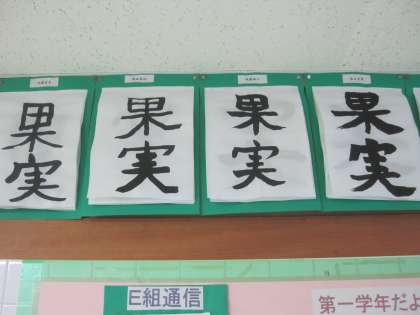 果実
果実
果実
果実
E組通信
第一学年だよ